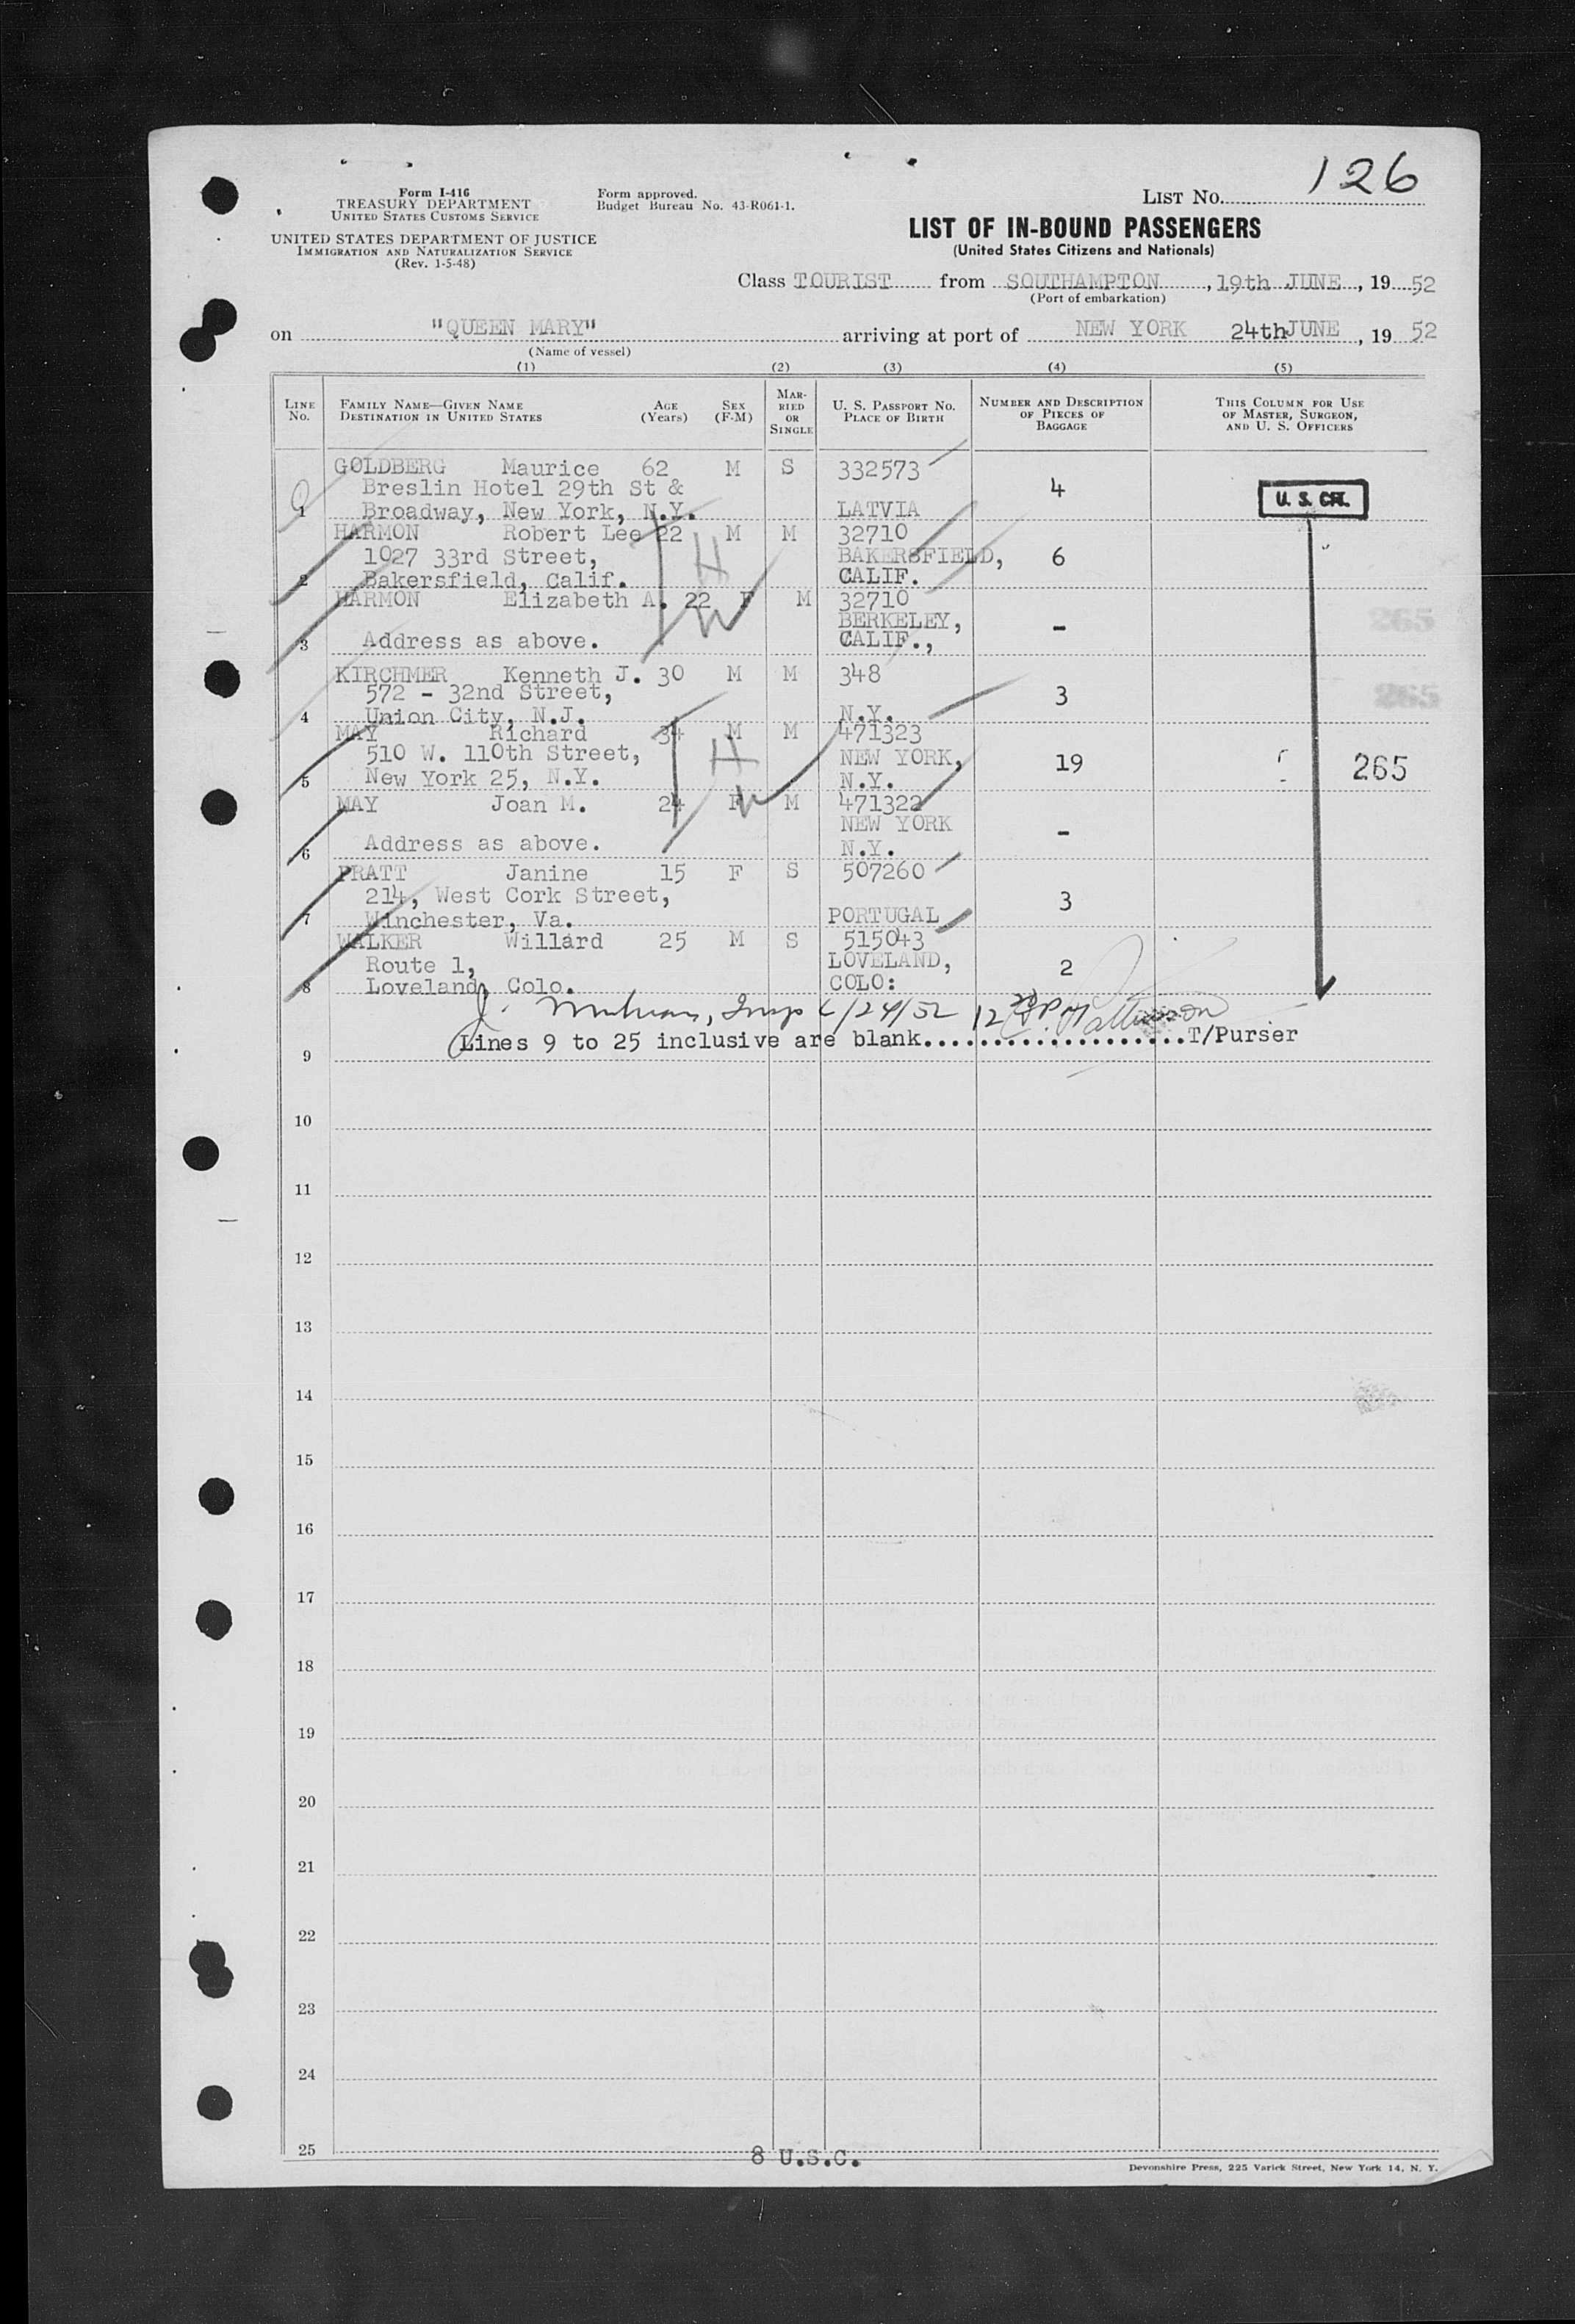 126
Form I-416
TREASURY DEPARTMENT
UNITED STATES CUSTOMS SERVICE
UNITED STATES DEPARTMENT OF JUSTICE
IMMIGRATION AND NATURALIZATION SERVICE
(Rev. 1-5-48)
Form approved.
Budget Bureau No. 43-R061-1.
LIST NO.
LIST OF IN-BOUND PASSENGERS
(United States Citizens and Nationals)
Class TOURIST from SOUTHAMPTON, 19th JUNE, 19 52
(Port of embarkation)
on "QUEEN MARY" arriving at port of NEW YORK 24th JUNE, 19 52
(Name of vessel)
(1) (2) (3) (4) (5)
LINE NO. FAMILY NAME—GIVEN NAME DESTINATION IN UNITED STATES AGE (Years) SEX (F-M) MARRIED OR SINGLE U. S. PASSPORT NO. PLACE OF BIRTH NUMBER AND DESCRIPTION OF PIECES OF BAGGAGE THIS COLUMN FOR USE OF MASTER, SURGEON, AND U. S. OFFICERS
GOLDBERG Maurice 62 M S 332573
Breslin Hotel 29th St & 4 U. S. CIT.
1 Broadway, New York, N.Y. LATVIA
HARMON Robert Lee 22 M M 32710
1027 33rd Street, H BAKERSFIELD, 6
2 Bakersfield, Calif. CALIF.
HARMON Elizabeth A. 22 F M 32710
W BERKELEY, 265
3 Address as above. CALIF., -
KIRCHMER Kenneth J. 30 M M 348
572 - 32nd Street, 3 265
4 Union City, N.J. N.Y.
MAY Richard 34 M M 471323
510 W. 110th Street, H NEW YORK, 19 265
5 New York 25, N.Y. N.Y.
MAY Joan M. 24 F M 471322
W NEW YORK -
6 Address as above. N.Y.
PRATT Janine 15 F S 507260
214, West Cork Street, 3
7 Winchester, Va. PORTUGAL
WALKER Willard 25 M S 515043
Route 1, LOVELAND, 2
8 Loveland, Colo. COLO:
J. Insp 6/24/52 12
9 Lines 9 to 25 inclusive are blank....................T/Purser
10
11
12
13
14
15
16
17
18
19
20
21
22
23
24
25
8 U.S.C.
Devonshire Press, 225 Varick Street, New York 14, N. Y.